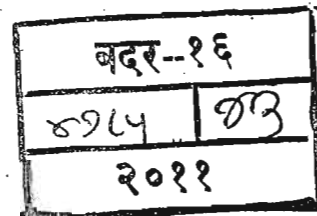 बदर--१६
४७८५ ४३
२०११